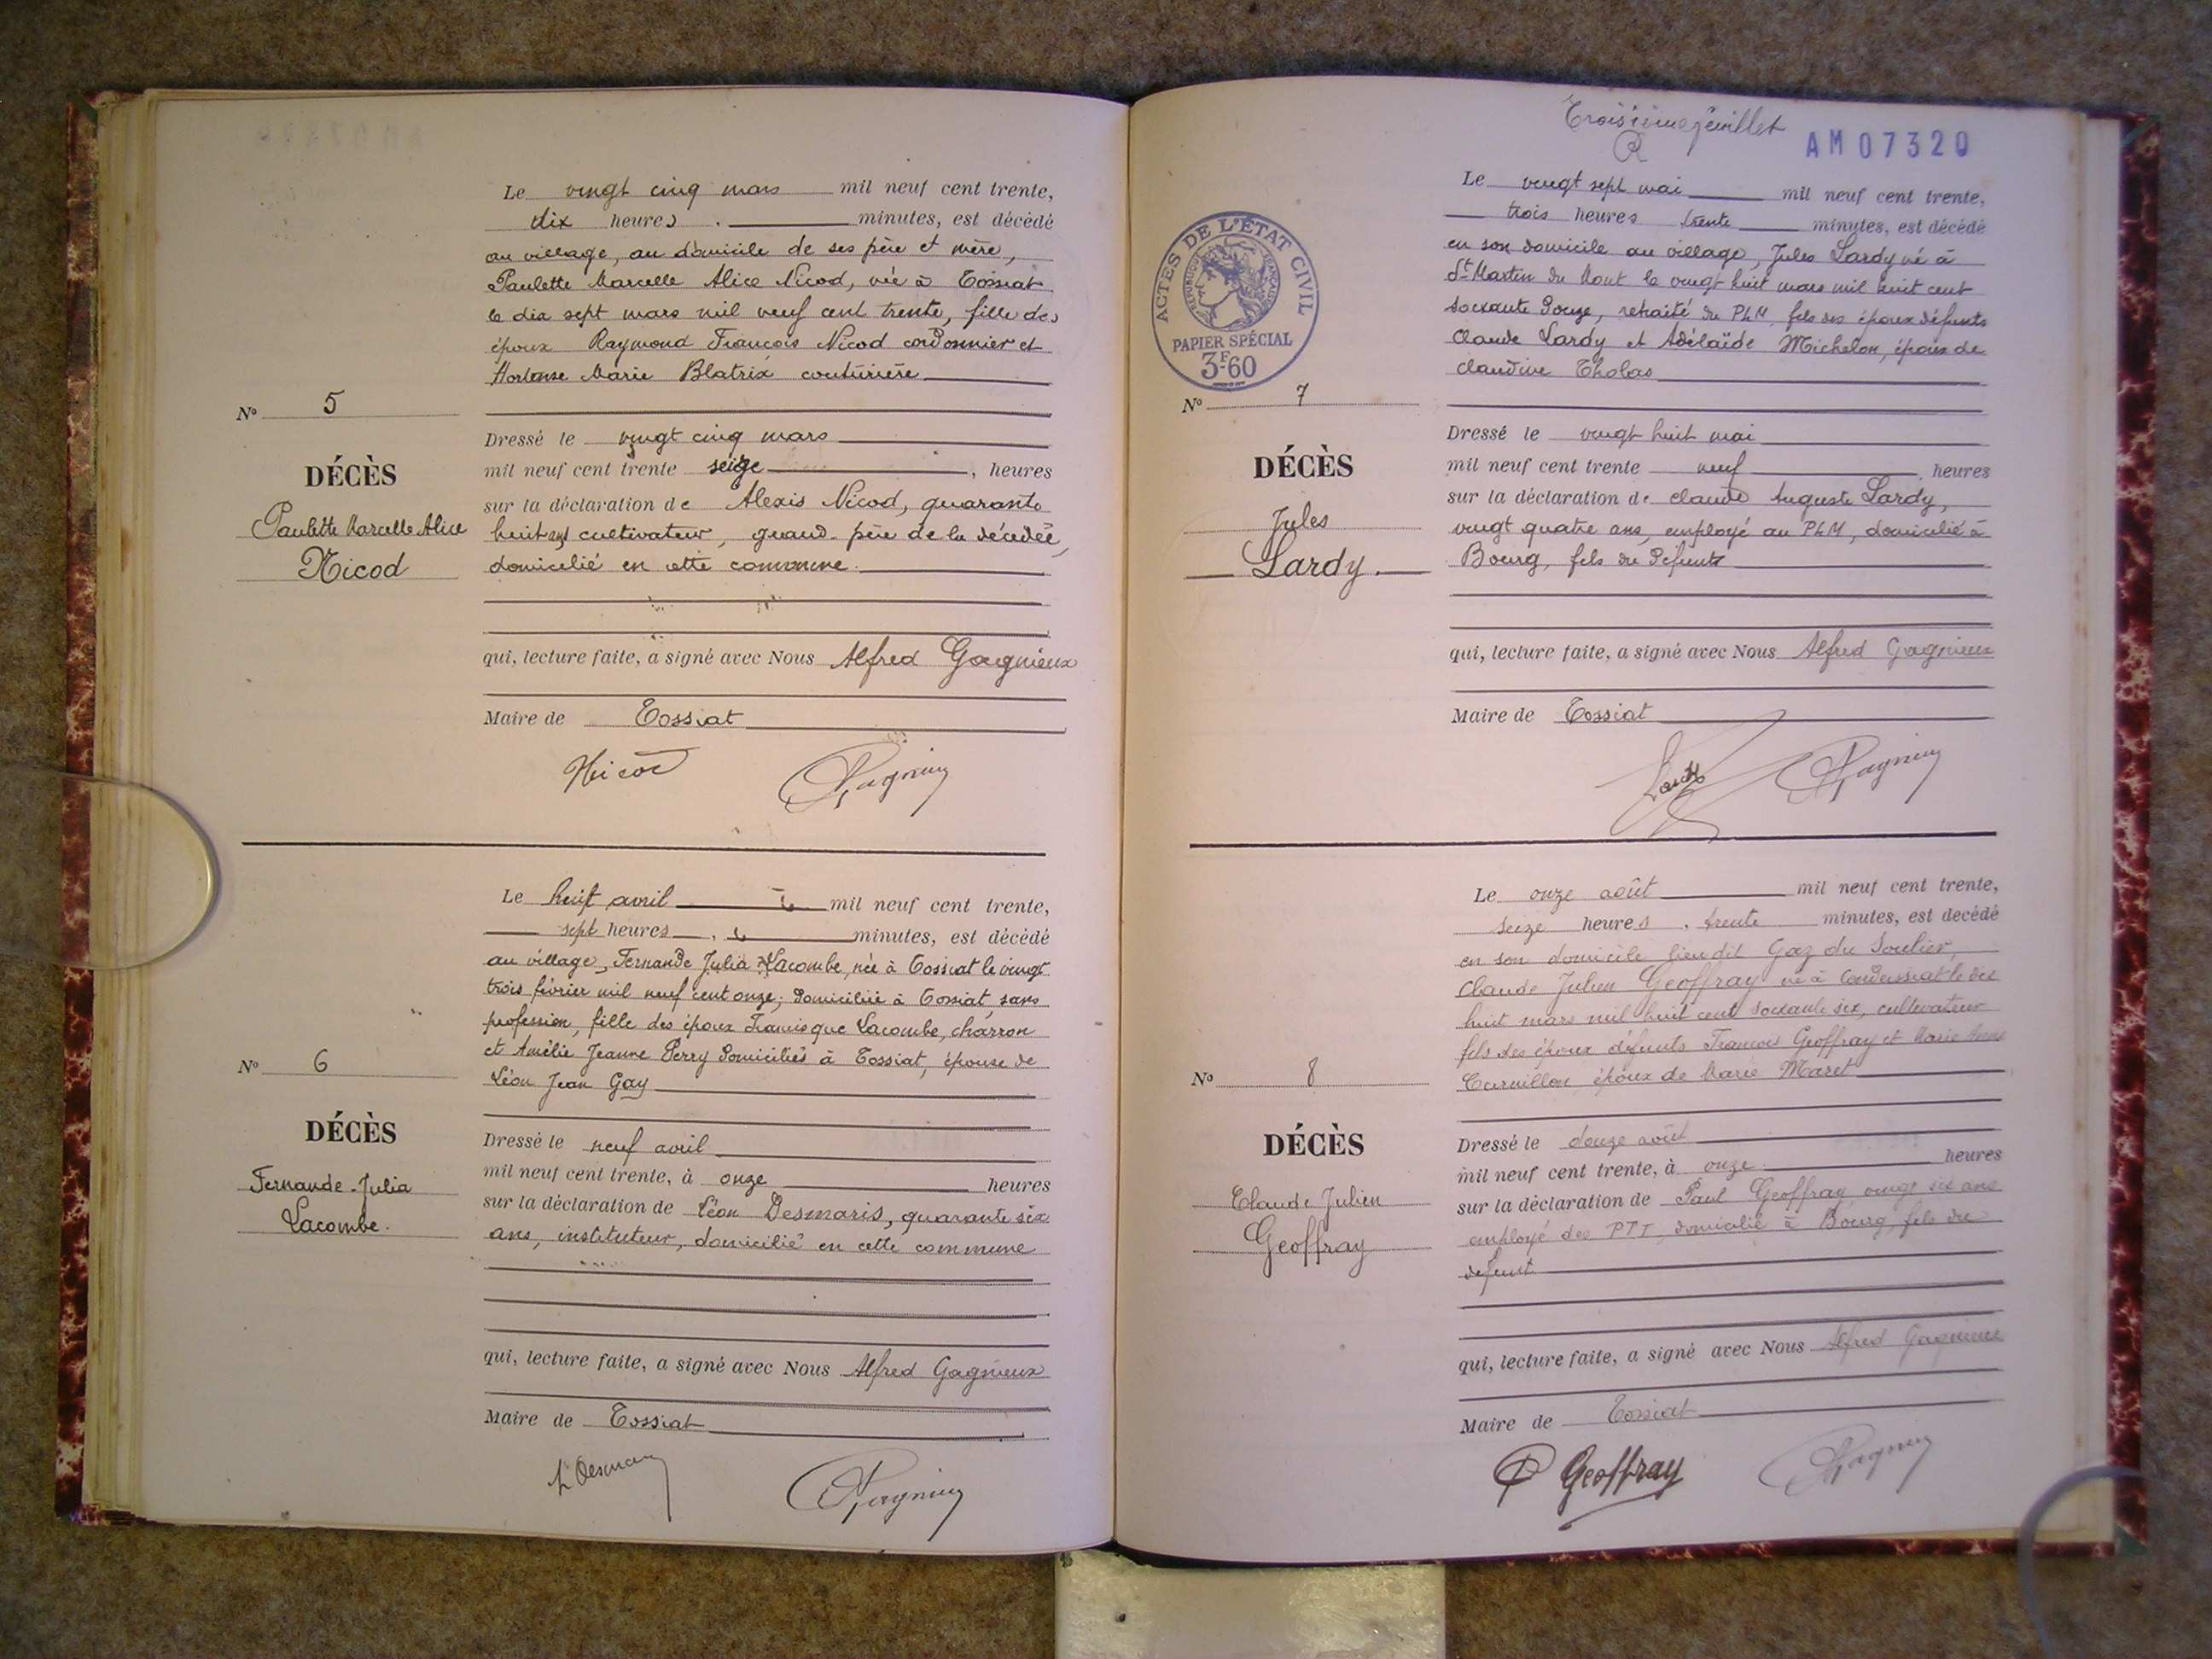 Le vingt cinq mars mil neuf cent trente,
dix heures . minutes, est décédé
au village, au domicile de ses père et mère,
Paulette Marcelle Alice Nicod, née à Tossiat
le dix sept mars mil neuf cent trente, fille des
époux Raymond François Nicod cordonnier et
Hortense Marie Blatrix couturière
No 5
DÉCÈS
Paulette Marcelle Alice
Nicod
Dressé le vingt cinq mars
mil neuf cent trente seize , heures
sur la déclaration de Alexis Nicod, quarante
huit ans cultivateur, grand-père de la décédée,
domicilié en cette commune.
qui, lecture faite, a signé avec Nous Alfred Gagnieux
Maire de Tossiat
Nicod
Gagnieux
Le huit avril mil neuf cent trente,
sept heures , minutes, est décédé
au village, Fernande Julia Lacombe, née à Tossiat le vingt
trois février mil neuf cent onze, domiciliée à Tossiat, sans
profession, fille des époux Francisque Lacombe, charron
et Amélie Jeanne Perry domiciliés à Tossiat, épouse de
Léon Jean Gay
No 6
DÉCÈS
Fernande-Julia
Lacombe.
Dressé le neuf avril
mil neuf cent trente, à onze heures
sur la déclaration de Léon Desmaris, quarante six
ans, instituteur, domicilié en cette commune
qui, lecture faite, a signé avec Nous Alfred Gagnieux
Maire de Tossiat
L Desmaris
Gagnieux
Troisième feuillet
AM07320
ACTES DE L'ÉTAT CIVIL
RÉPUBLIQUE FRANÇAISE
PAPIER SPÉCIAL
3F60
Le vingt sept mai mil neuf cent trente,
trois heures trente minutes, est décédé
en son domicile au village, Jules Lardy né à
St Martin du Mont le vingt huit mars mil huit cent
soixante douze, retraité du PLM, fils des époux défunts
Claude Lardy et Adélaïde Michelon, époux de
Claudine Tholas
No 7
DÉCÈS
Jules
Lardy.
Dressé le vingt huit mai
mil neuf cent trente neuf heures
sur la déclaration de Claude Auguste Lardy,
vingt quatre ans, employé au PLM, domicilié à
Bourg, fils du défunt
qui, lecture faite, a signé avec Nous Alfred Gagnieux
Maire de Tossiat
Lardy
Gagnieux
Le onze août mil neuf cent trente,
seize heures . trente minutes, est décédé
en son domicile lieu dit Gaz du Soulier,
Claude Julien Geoffray né à Condeissiat le dix
huit mars mil huit cent soixante six, cultivateur
fils des époux défunts François Geoffray et Marie Anne
époux de Marie Maret
No 8
DÉCÈS
Claude Julien
Geoffray
Dressé le douze août
mil neuf cent trente, à onze heures
sur la déclaration de Paul Geoffray vingt six ans
employé des PTT, domicilié à Bourg, fils du
défunt
qui, lecture faite, a signé avec Nous Alfred Gagnieux
Maire de Tossiat
P Geoffray
Gagnieux